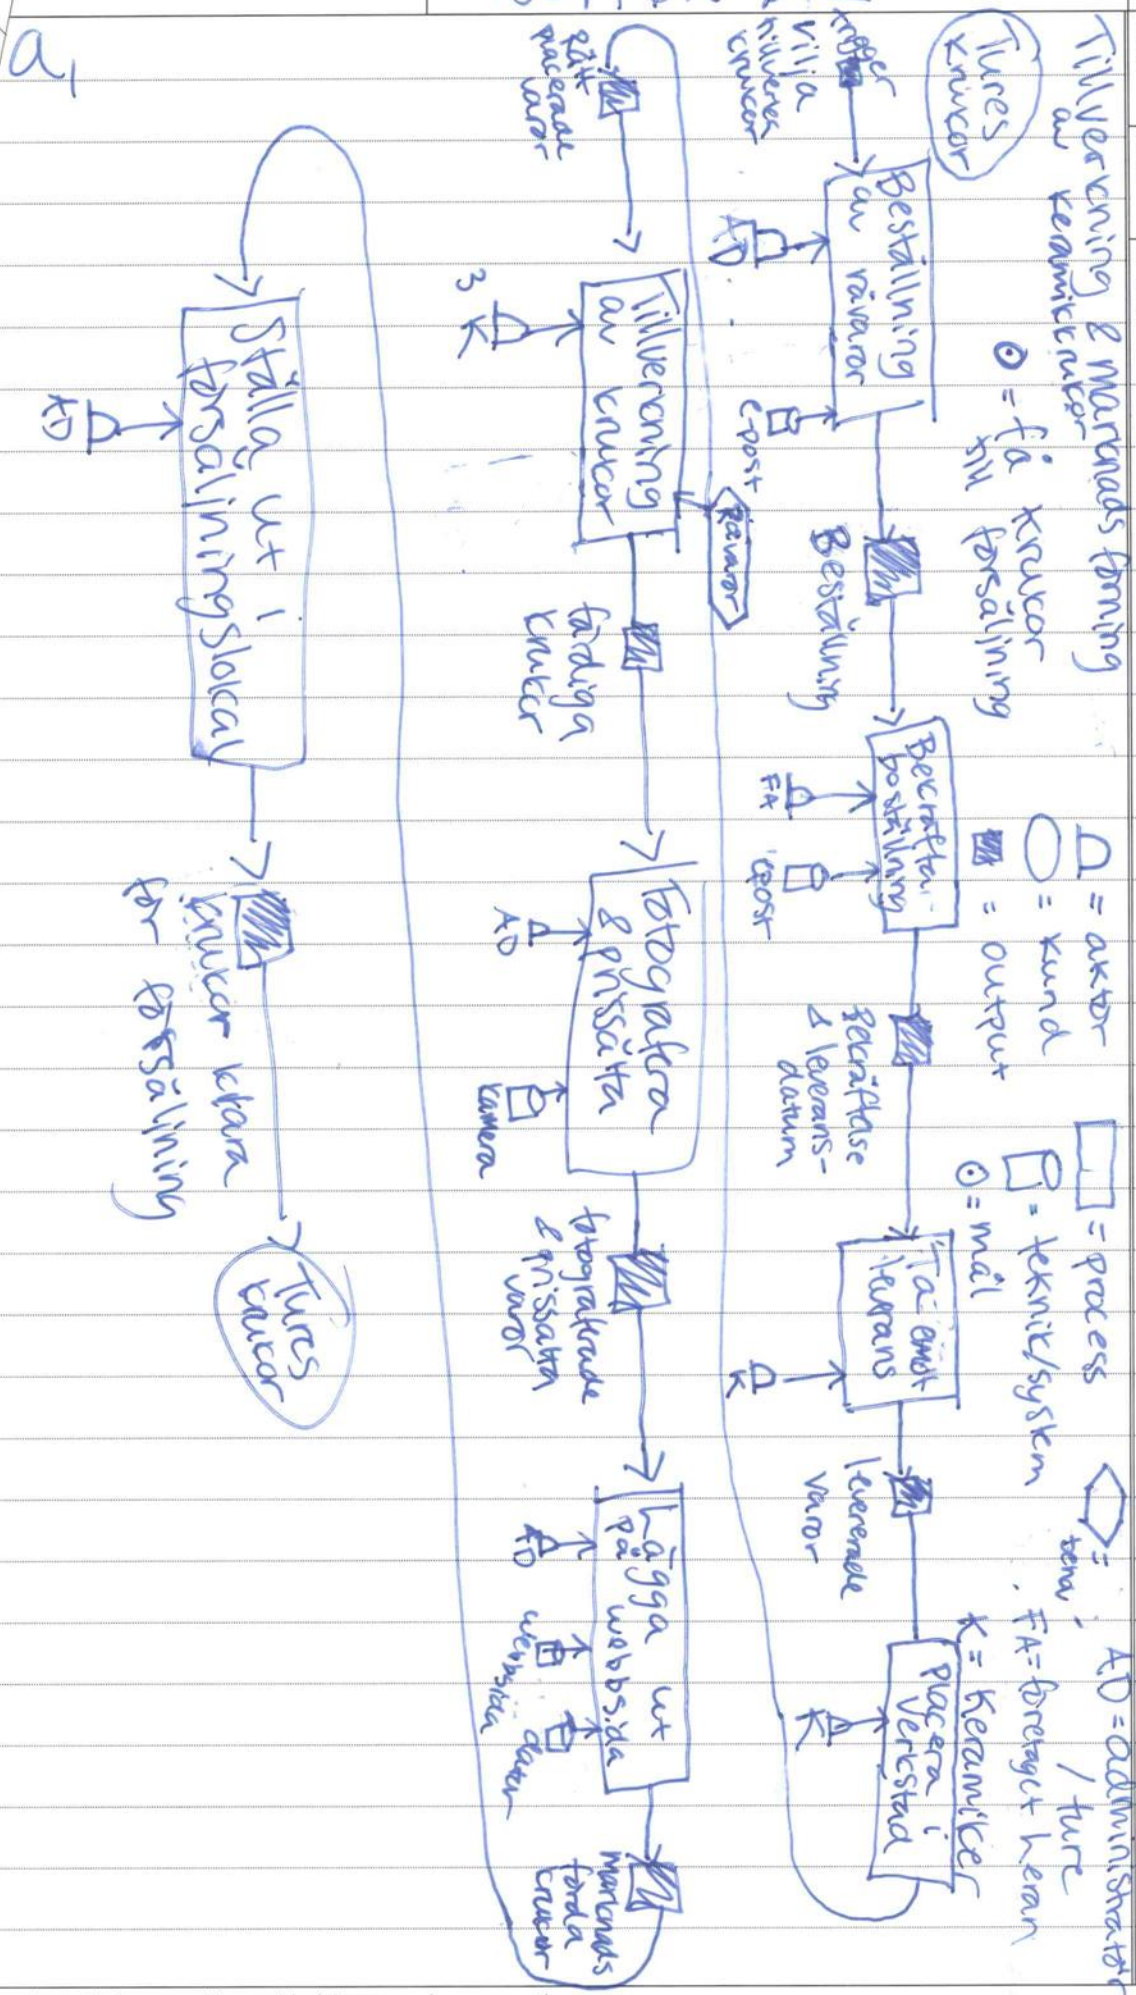 Tillverkning & marknadsförning
av keramikkrukor
Tures
krukor
= få krukor
till försäljning
= aktör
= kund
= output
= process
= teknik/system
= mål
=
AD = administratör
/ ture
FA = företaget heran
K = Keramiker
vilja
tillverka
krukor
Beställning
av råvaror
AD
e-post
Beställning
Bekräfta
beställning
FA
epost
Bekräftelse
& leverans-
datum
Ta emot
leverans
K
levererade
varor
Placera i
verkstad
K
rätt
placerade
varor
Tillverkning
av krukor
3 K
råvaror
färdiga
krukor
Fotografera
& prissätta
AD
kamera
fotograferade
& prissatta
varor
Lägga ut
på webbsida
AD
webbsida
dator
marknads
förda
krukor
Ställa ut i
försäljningslokal
AD
krukor klara
för försäljning
Tures
krukor
a1